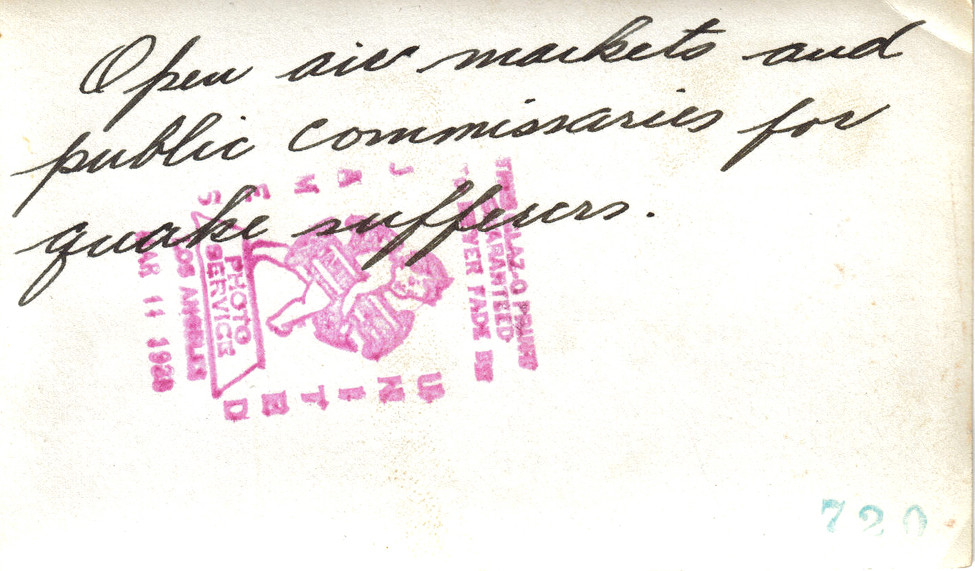 Open air markets and
public commissaries for
quake sufferers.
PRINT
GUARANTEED
NEVER FADE BY
UNITED
JAMES
PHOTO
SERVICE
LOS ANGELES
MAR 11
720